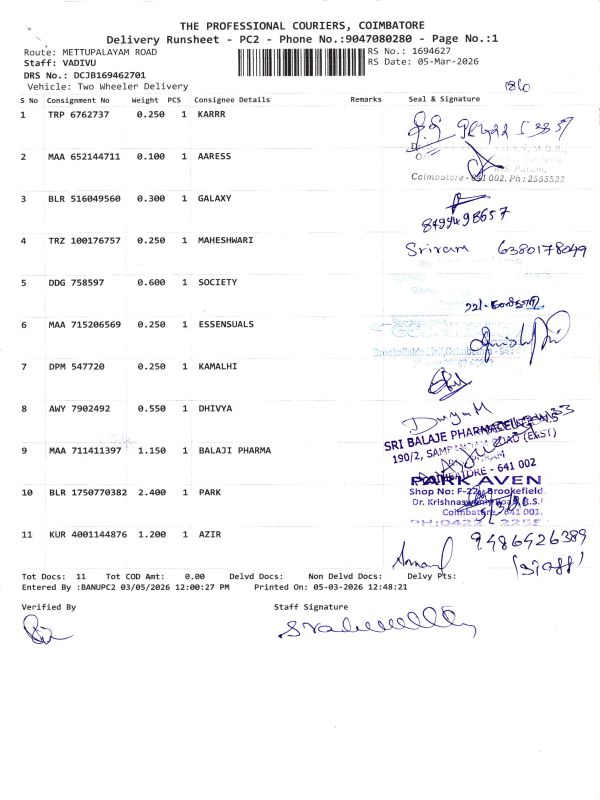 THE PROFESSIONAL COURIERS, COIMBATORE
Delivery Runsheet - PC2 - Phone No.:9047080280 - Page No.:1
Route: METTUPALAYAM ROAD RS No.: 1694627
Staff: VADIVU RS Date: 05-Mar-2026
DRS No.: DCJB169462701
Vehicle: Two Wheeler Delivery
186
S No Consignment No Weight PCS Consignee Details Remarks Seal & Signature
1 TRP 6762737 0.250 1 KARRR
2 MAA 652144711 0.100 1 AARESS
Coimbatore - 641 002. Ph: 2555532
3 BLR 516049560 0.300 1 GALAXY
8499498657
4 TRZ 100176757 0.250 1 MAHESHWARI Sriram 6380178049
5 DDG 758597 0.600 1 SOCIETY
6 MAA 715206569 0.250 1 ESSENSUALS
Brookefields Mall, Coimbatore - 641
7 DPM 547720 0.250 1 KAMALHI
8 AWY 7902492 0.550 1 DHIVYA
Divya M
SRI BALAJE PHARMACEUTICALS
9 MAA 711411397 1.150 1 BALAJI PHARMA 190/2, ROAD (EAST)
COIMBATORE - 641 002
PARK AVEN
10 BLR 1750770382 2.400 1 PARK Shop No: F-22, Brookefield
Dr. Krishnaswamy Road, R.S.
Coimbatore - 641 001.
PH:0422 2255
11 KUR 4001144876 1.200 1 AZIR 9486426389
Anand (Staff)
Tot Docs: 11 Tot COD Amt: 0.00 Delvd Docs: Non Delvd Docs: Delvy Pts:
Entered By :BANUPC2 03/05/2026 12:00:27 PM Printed On: 05-03-2026 12:48:21
Verified By Staff Signature